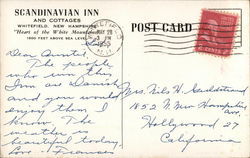 SCANDINAVIAN INN
AND COTTAGES
WHITEFIELD, NEW HAMPSHIRE
"Heart of the White Mountains"
1800 FEET ABOVE SEA LEVEL
POST CARD
Dear Aunt
The people
who run this
Inn are Danish
and you would
enjoy them I
know. The
weather is
beautiful today.
Love, Frances
Mrs. Nils H.
1852 N. New Hampshire
Ave.
Hollywood 27
California